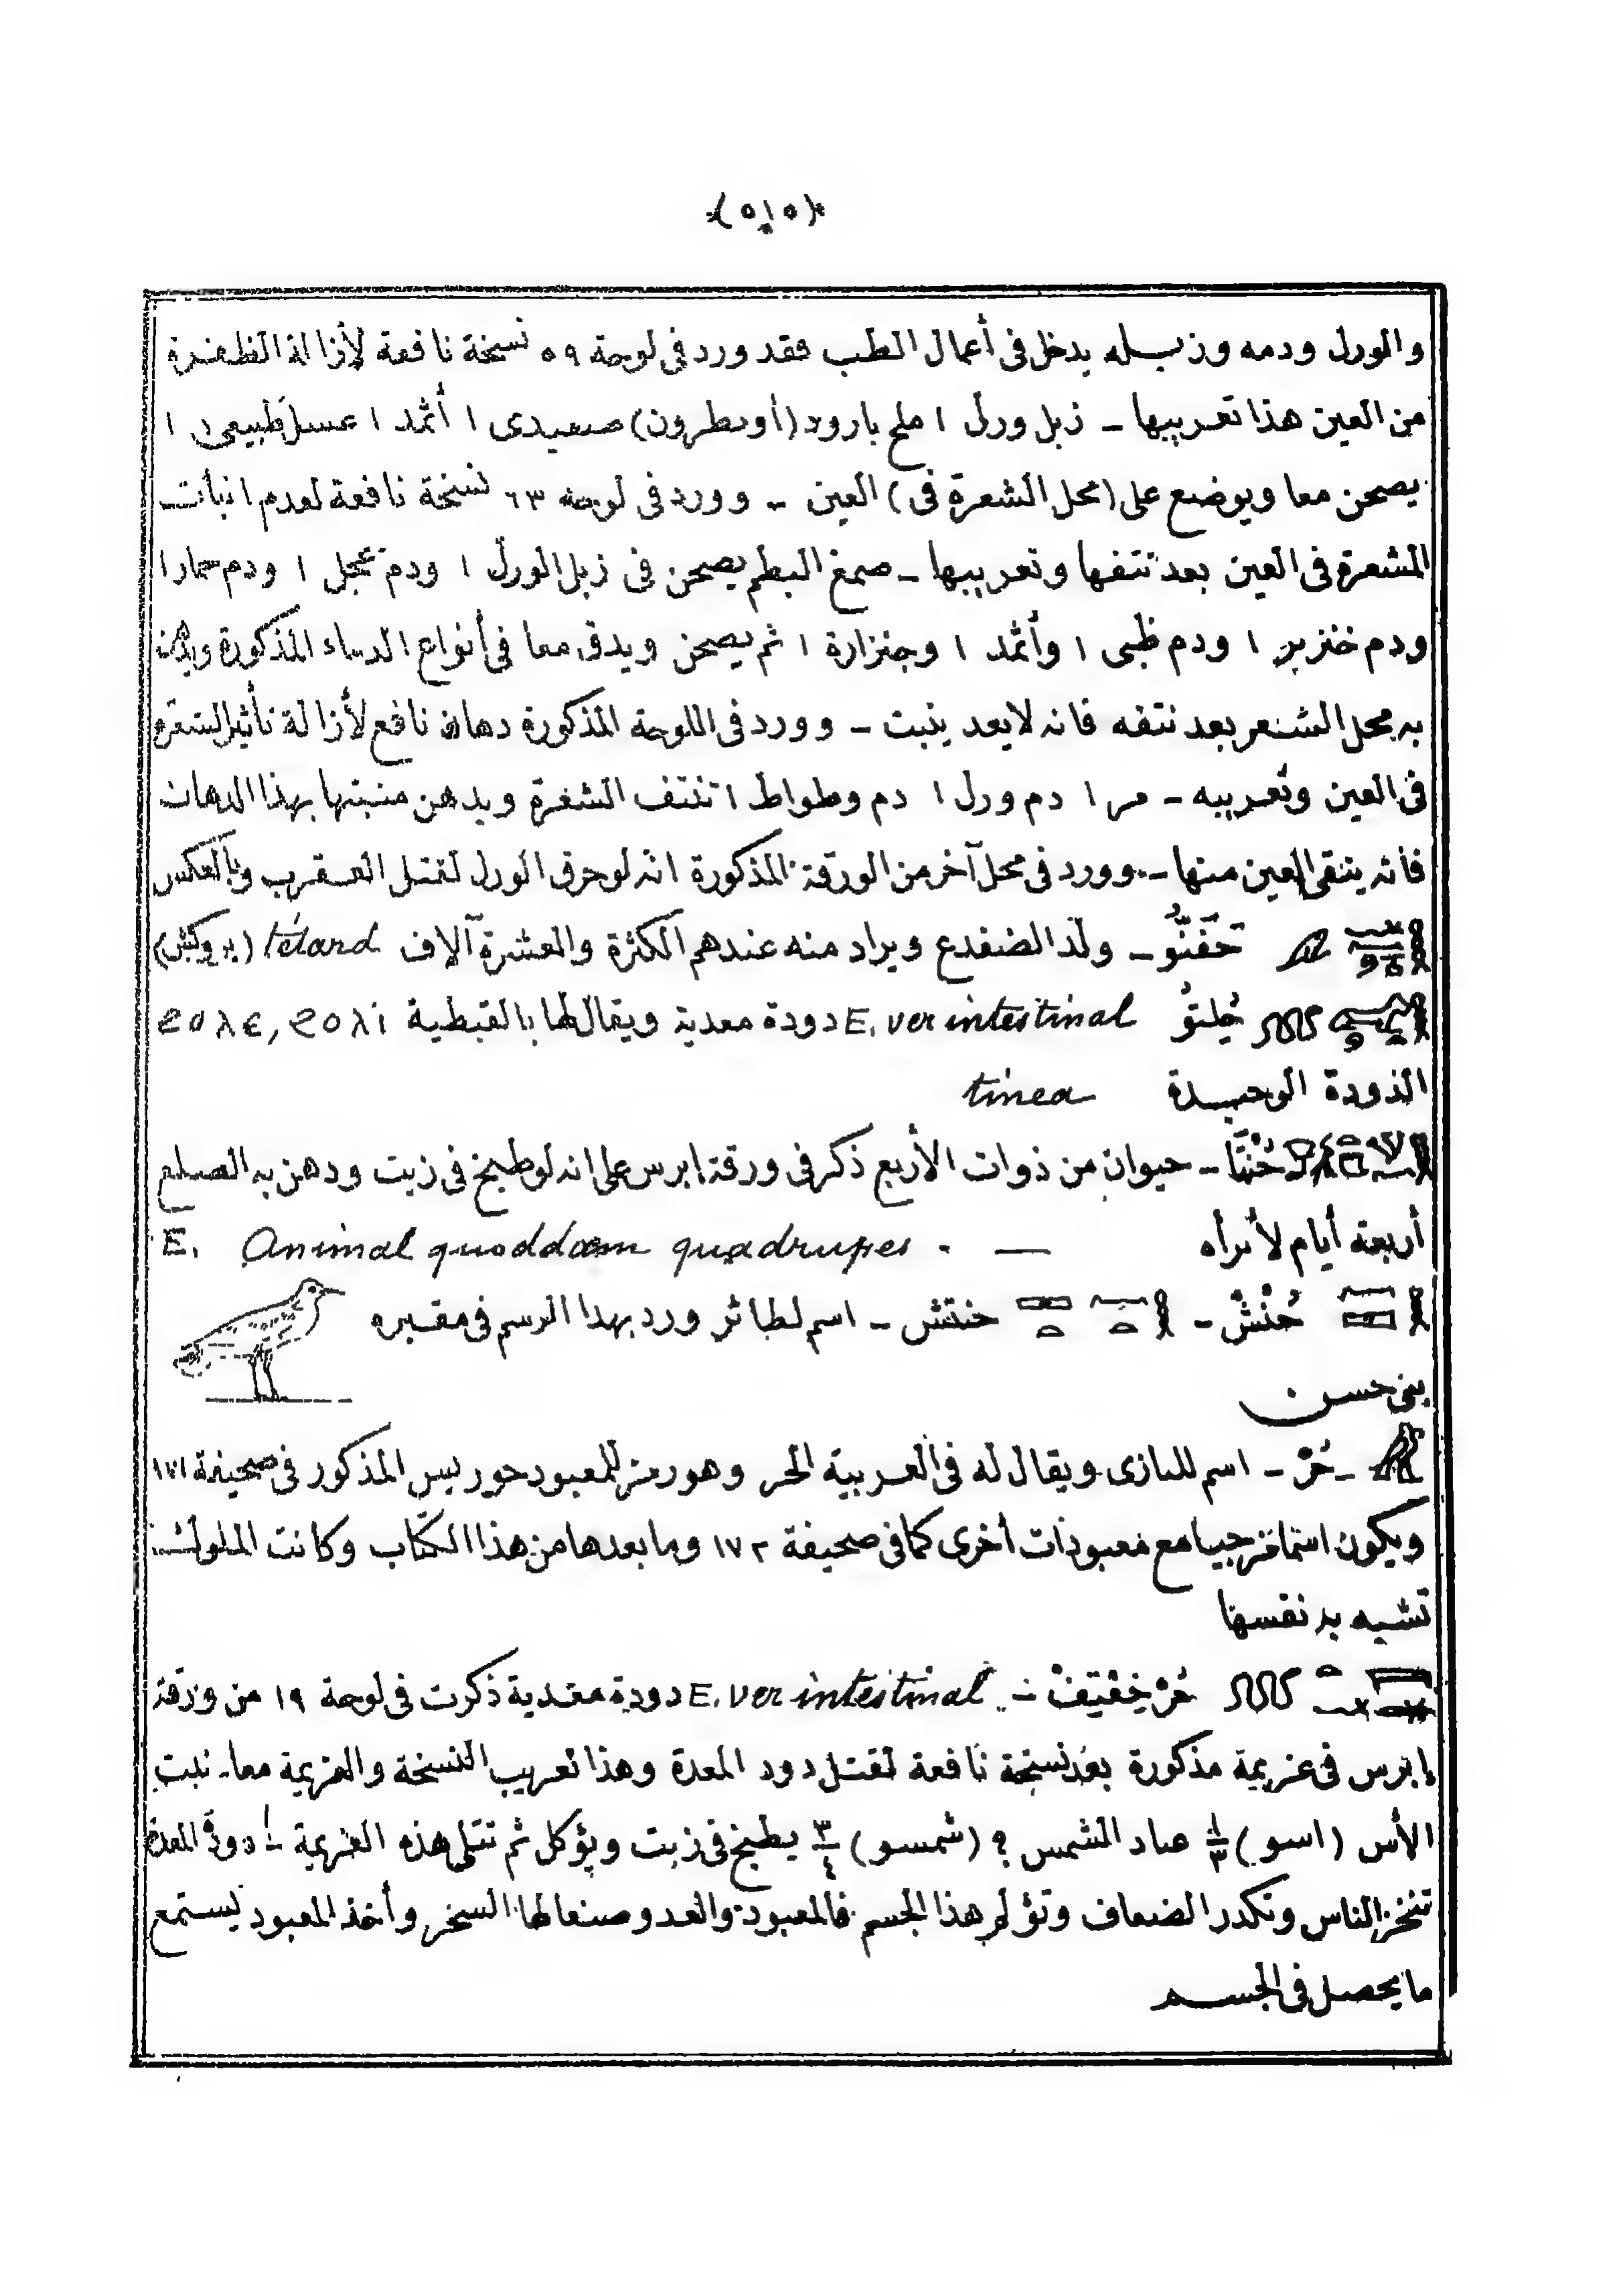 (٥١٥)
والورل ودمه وزبله يدخل فى أعمال الطب فقد ورد فى لوحة ٥٩ نسخة نافعة لأزالة الظفرة
من العين هذا تعريبها ـ زبل ورل ١ ملح بارود (أو نطرون) صعيدى ١ أثمد ١ عسل طبيعى ١
يصحن معا ويوضع على (محل الشعرة فى) العين ـ وورد فى لوحة ٦٣ نسخة نافعة لعدم انبات
الشعرة فى العين بعد نتفها وتعريبها ـ صمغ البطم يصحن فى زبل الورل ١ ودم عجل ١ ودم حمار ١
ودم خنزير ١ ودم ظبى ١ وأثمد ١ وجنزارة ١ ثم يصحن ويدق معا فى أنواع الدماء المذكورة ويدهن
به محل الشعر بعد نتفه فانه لا يعد ينبت ـ وورد فى اللوحة المذكورة دهان نافع لأزالة تأثير الشعرة
فى العين وتعريبه ـ مر ١ دم ورل ١ دم وطواط ١ تنتف الشعرة ويدهن منبتها بهذا الدهان
فانه ينقى العين منها ـ وورد فى محل آخر من الورقة المذكورة انه لو حرق الورل لقتل العقرب وبالعكس
حَفَنُّو ـ ولد الضفدع ويراد منه عندهم الكثرة والعشرة آلاف têtard (بروكش)
حُلتُو E. ver intestinal دودة معدية ويقال لها بالقبطية ϩⲟⲗⲓ , ϩⲟⲗⲉ
الدودة الوحيدة tinea
حُنْتَا ـ حيوان من ذوات الأربع ذكر فى ورقة ابرس على انه لو طبخ فى زيت ودهن به الصلع
أربعة أيام لأبرأه — E. Animal quoddam quadrupes .
حُنْش ـ حنتش ـ اسم لطائر ورد بهذا الرسم فى مقبرة
بنى حسن
ـ حُرْ ـ اسم للبازى ويقال له فى العربية الحر وهو رمز للمعبود حوريس المذكور فى صحيفة ١٧١
ويكون اسما مزجيا مع معبودات أخرى كما فى صحيفة ١٧٢ وما بعدها من هذا الكتاب وكانت الملوك
تشبه به نفسها
حُرْ خِفْتِيفْ ـ E. ver intestinal دودة معدية ذكرت فى لوحة ١٩ من ورقة
إبرس فى عزيمة مذكورة بعد نسخة نافعة لقتل دود المعدة وهذا تعريب النسخة والعزيمة معا ـ نبت
الأس (اسو) ١/٣ عباد الشمس ؟ (شمسو) ٣/٤ يطبخ فى زيت ويؤكل ثم تتلى هذه العزيمة دودة المعدة
تنخر الناس وتكدر الضعاف وتؤلم هذا الجسم فالمعبود والعدو صنعا لها السحر وأخذ المعبود يستمع
ما يحصل فى الجسم